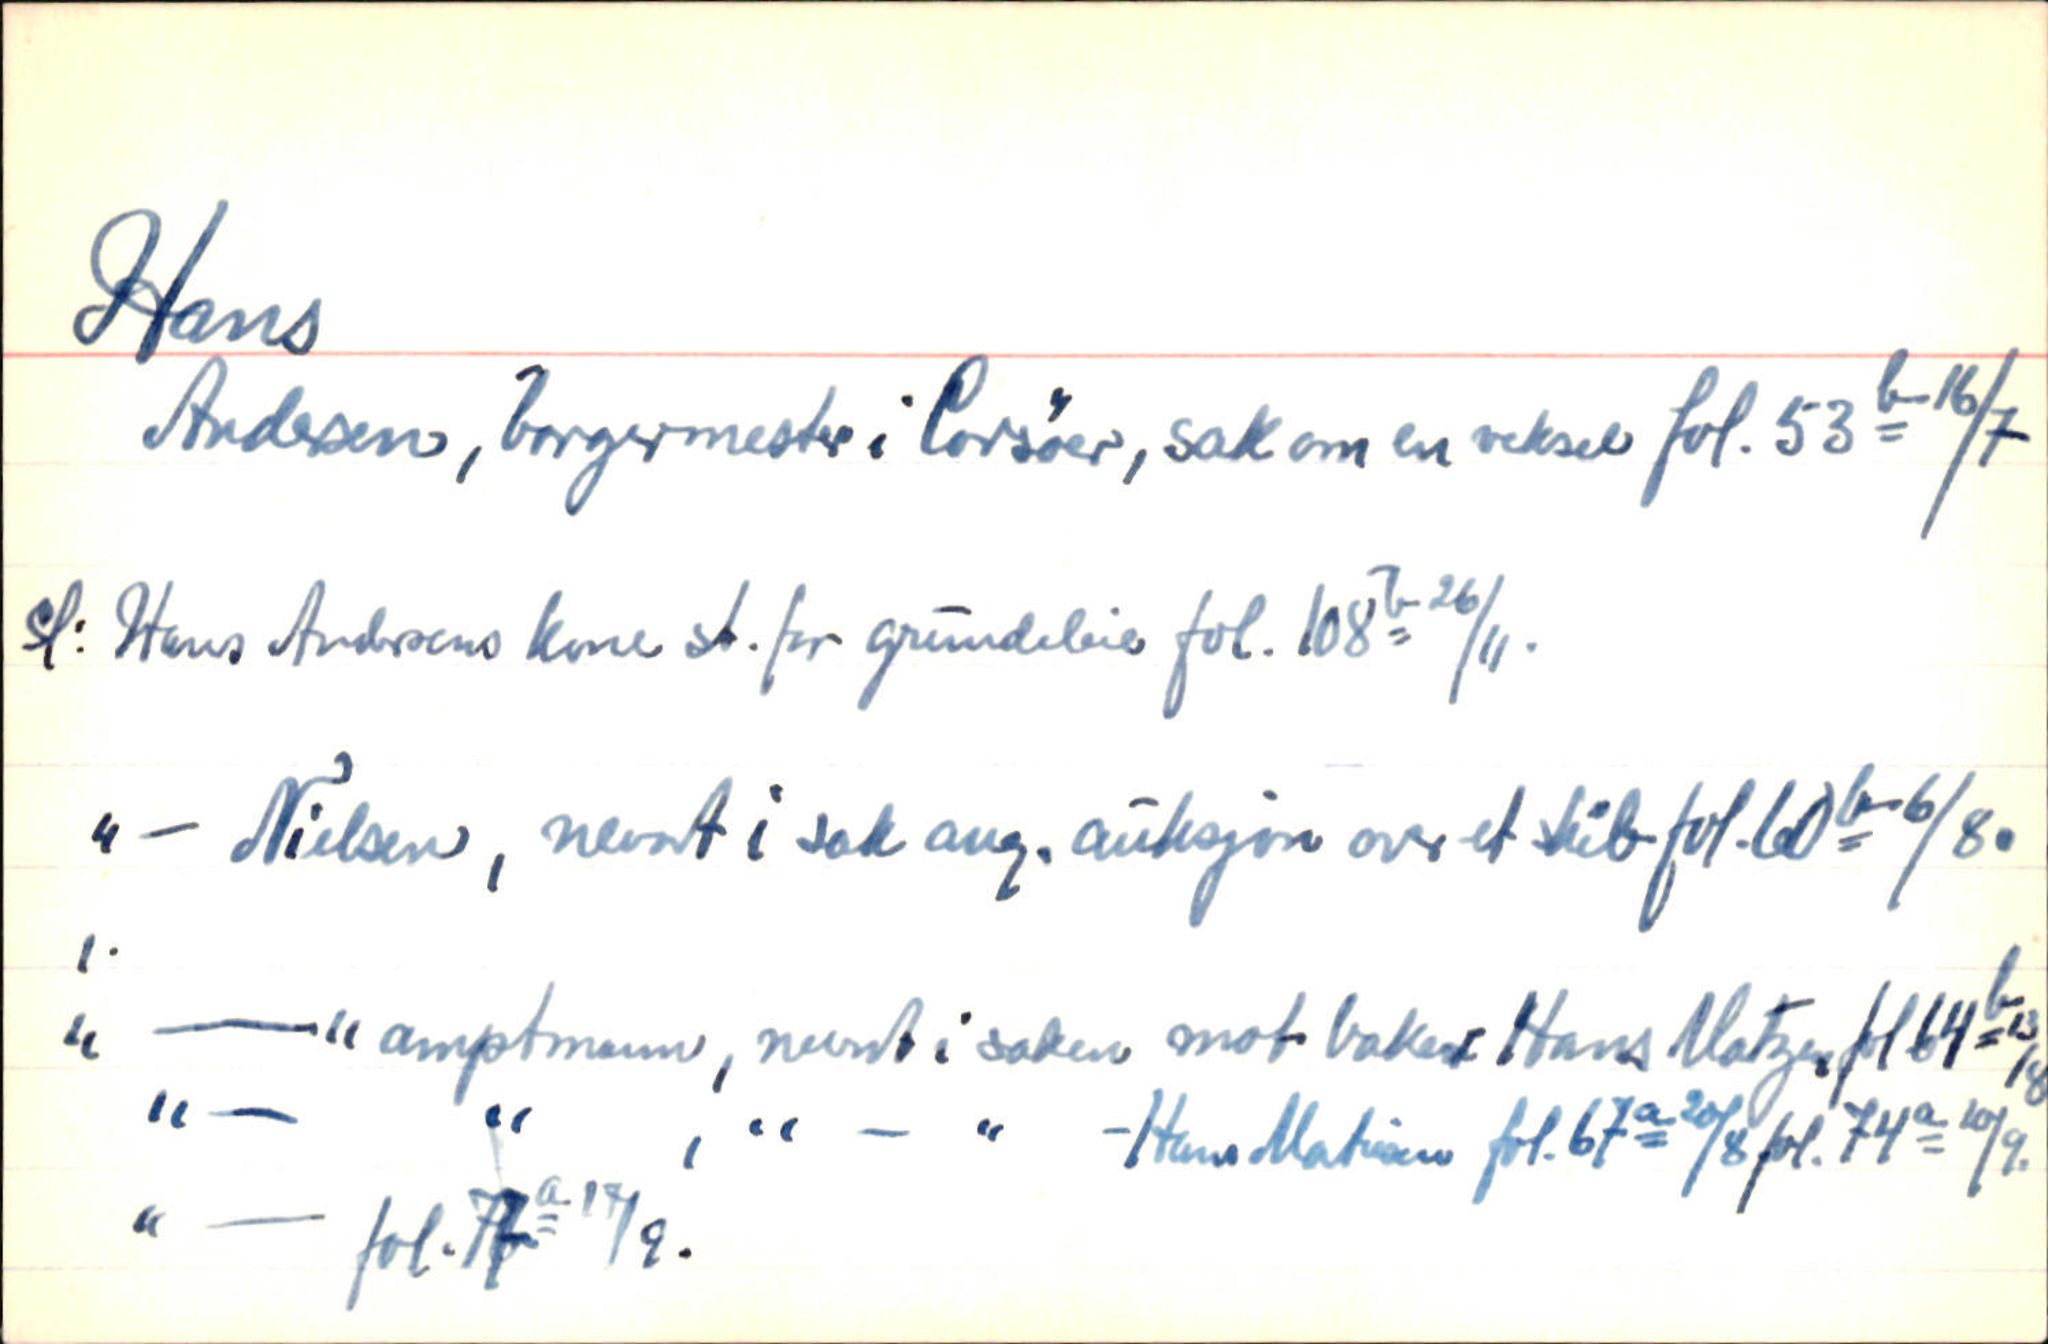 Hans
Andersen, borgermester i Corsöer, sak om en veksel fol. 53 b 16/7
Sl: Hans Andersens kone st. for grundeleie fol. 108 b 26/11.
" — Nielsen, nevnt i sak ang. auksjon over et skib fol. 60 b 6/8.
1.
" — " amptmann, nevnt i saken mot baker Hans Matzen fol 64 b 13/8
" — " , " — " - Hans Matisen fol. 67 a 20/8 fol. 74 a 10/9.
" — fol. a 17/9.